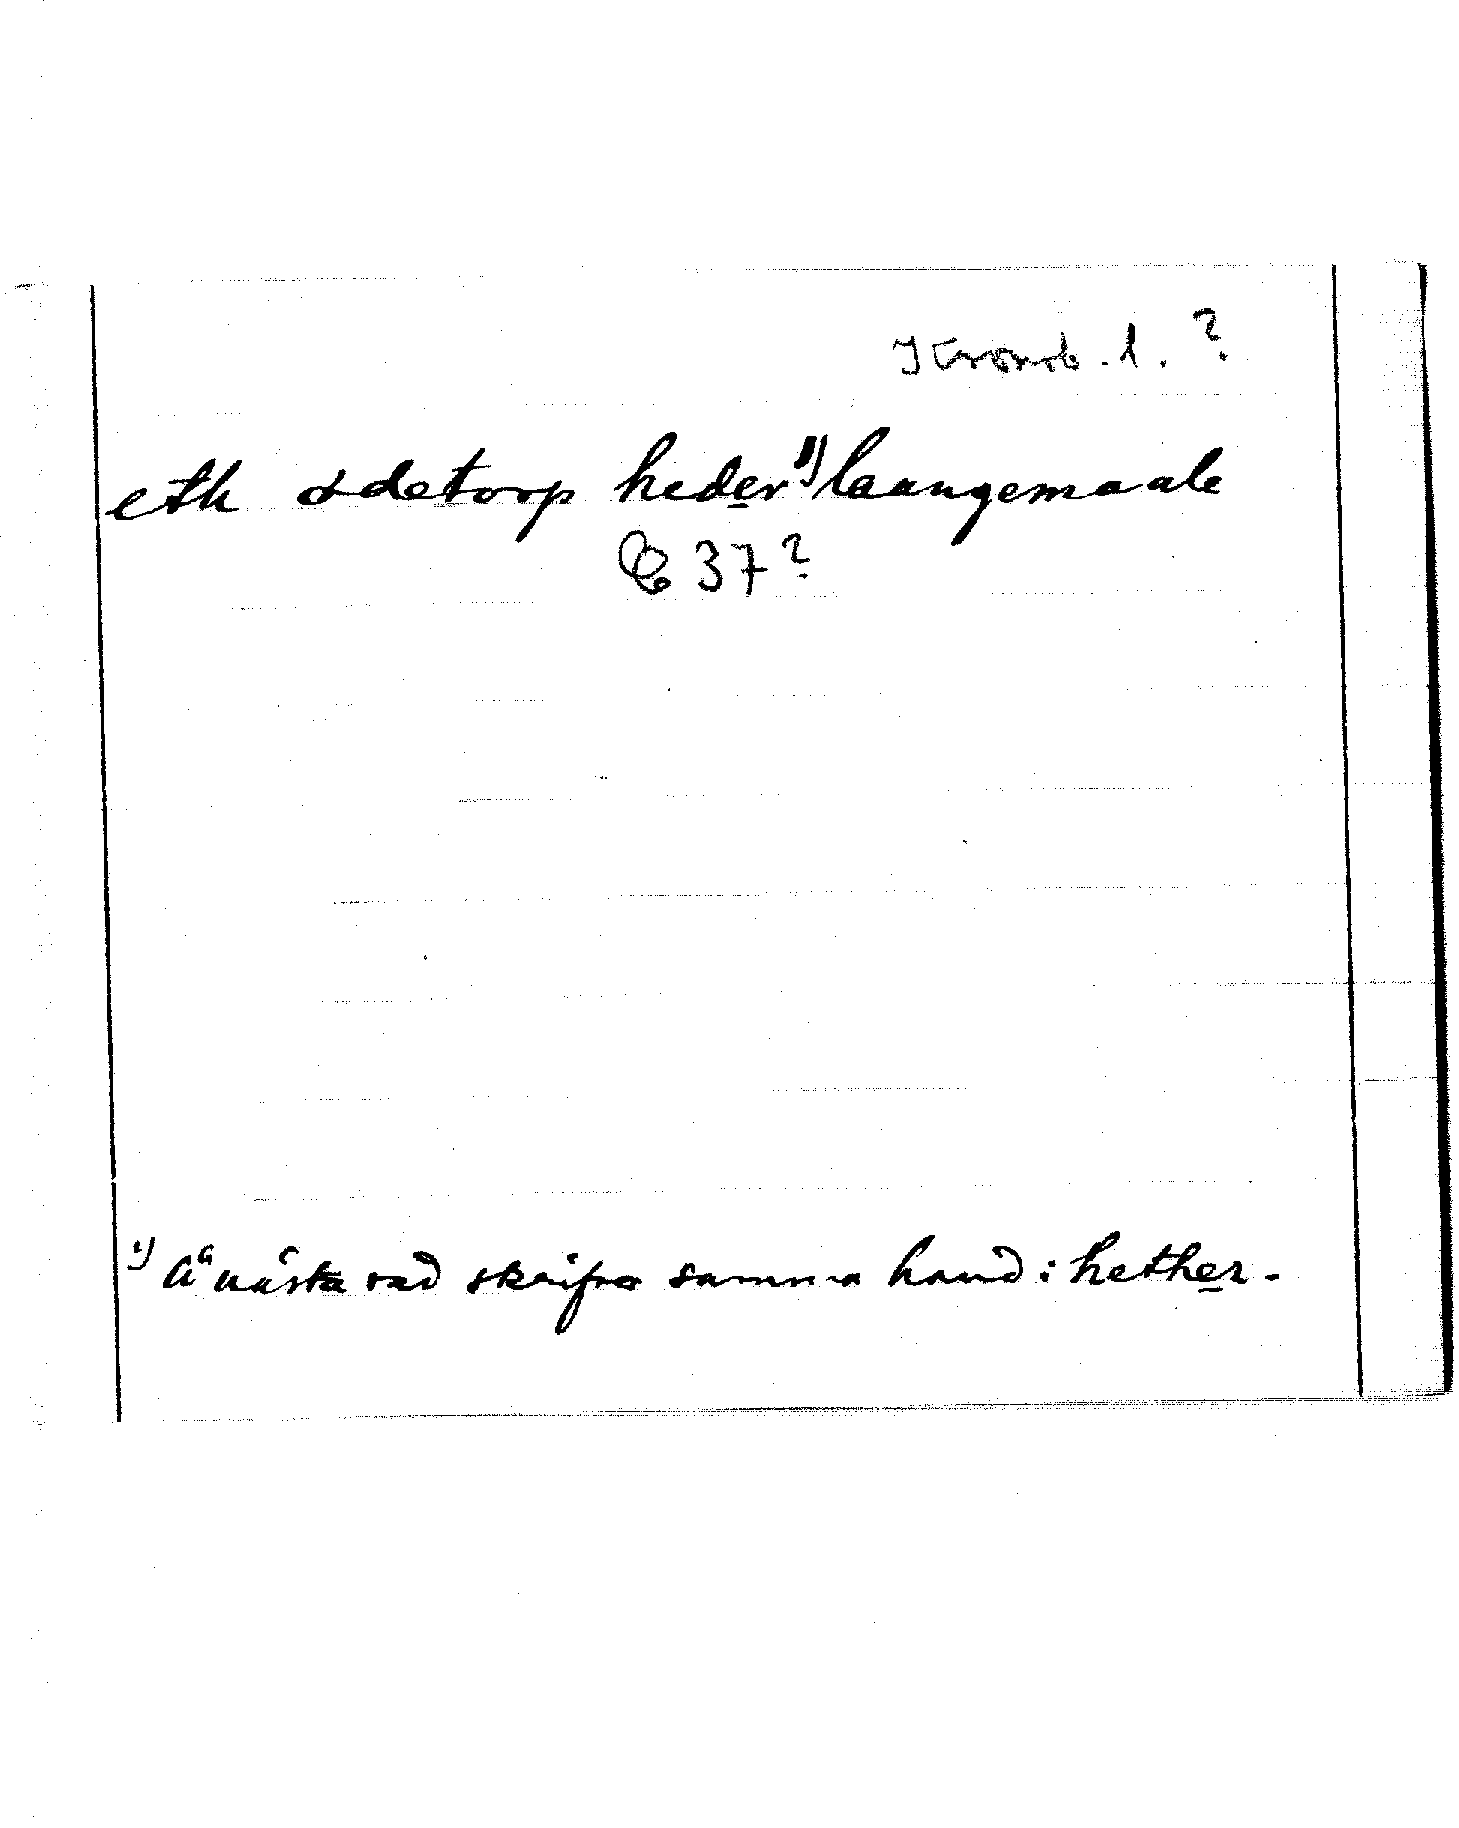 Kronob. l. ?
eth ødetorp heder 1) laangemaale
C 37?
1) Å nästa rad skrifver samma hand: hether.